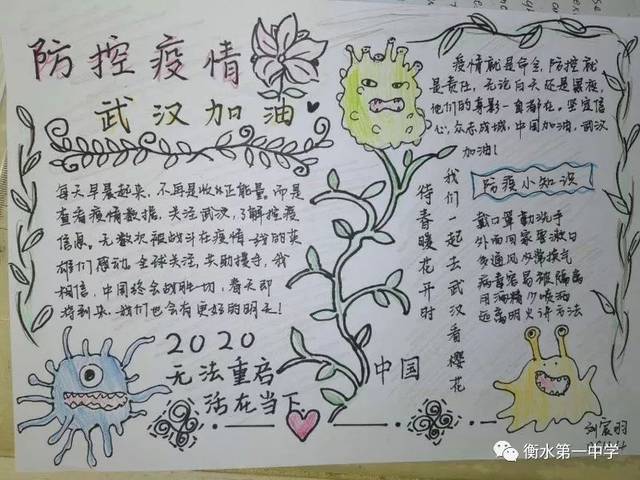 防控疫情
武汉加油
每天早晨起来，不再是收正能量。而是
查看疫情数据，关注武汉，了解控疫
信息。无数次被战斗在疫情一线的英
雄们感动。全球关注，
相信，中国终会战胜一切，春天即
将到来。我们也会有更好的明天！
2020
无法重启
活在当下
疫情就是命令，防控就
是责任，无论白天还是黑夜，
他们的身影一直都在。坚定信
心，众志成城，中国加油，武汉
加油！
待春暖花开时
我们一起去武汉看樱花
中国
防疫小知识
戴口罩勤洗手
外面回家要漱口
多通风多常换气
病毒容易被隔离
用酒精少喷洒
远离明火
衡水第一中学